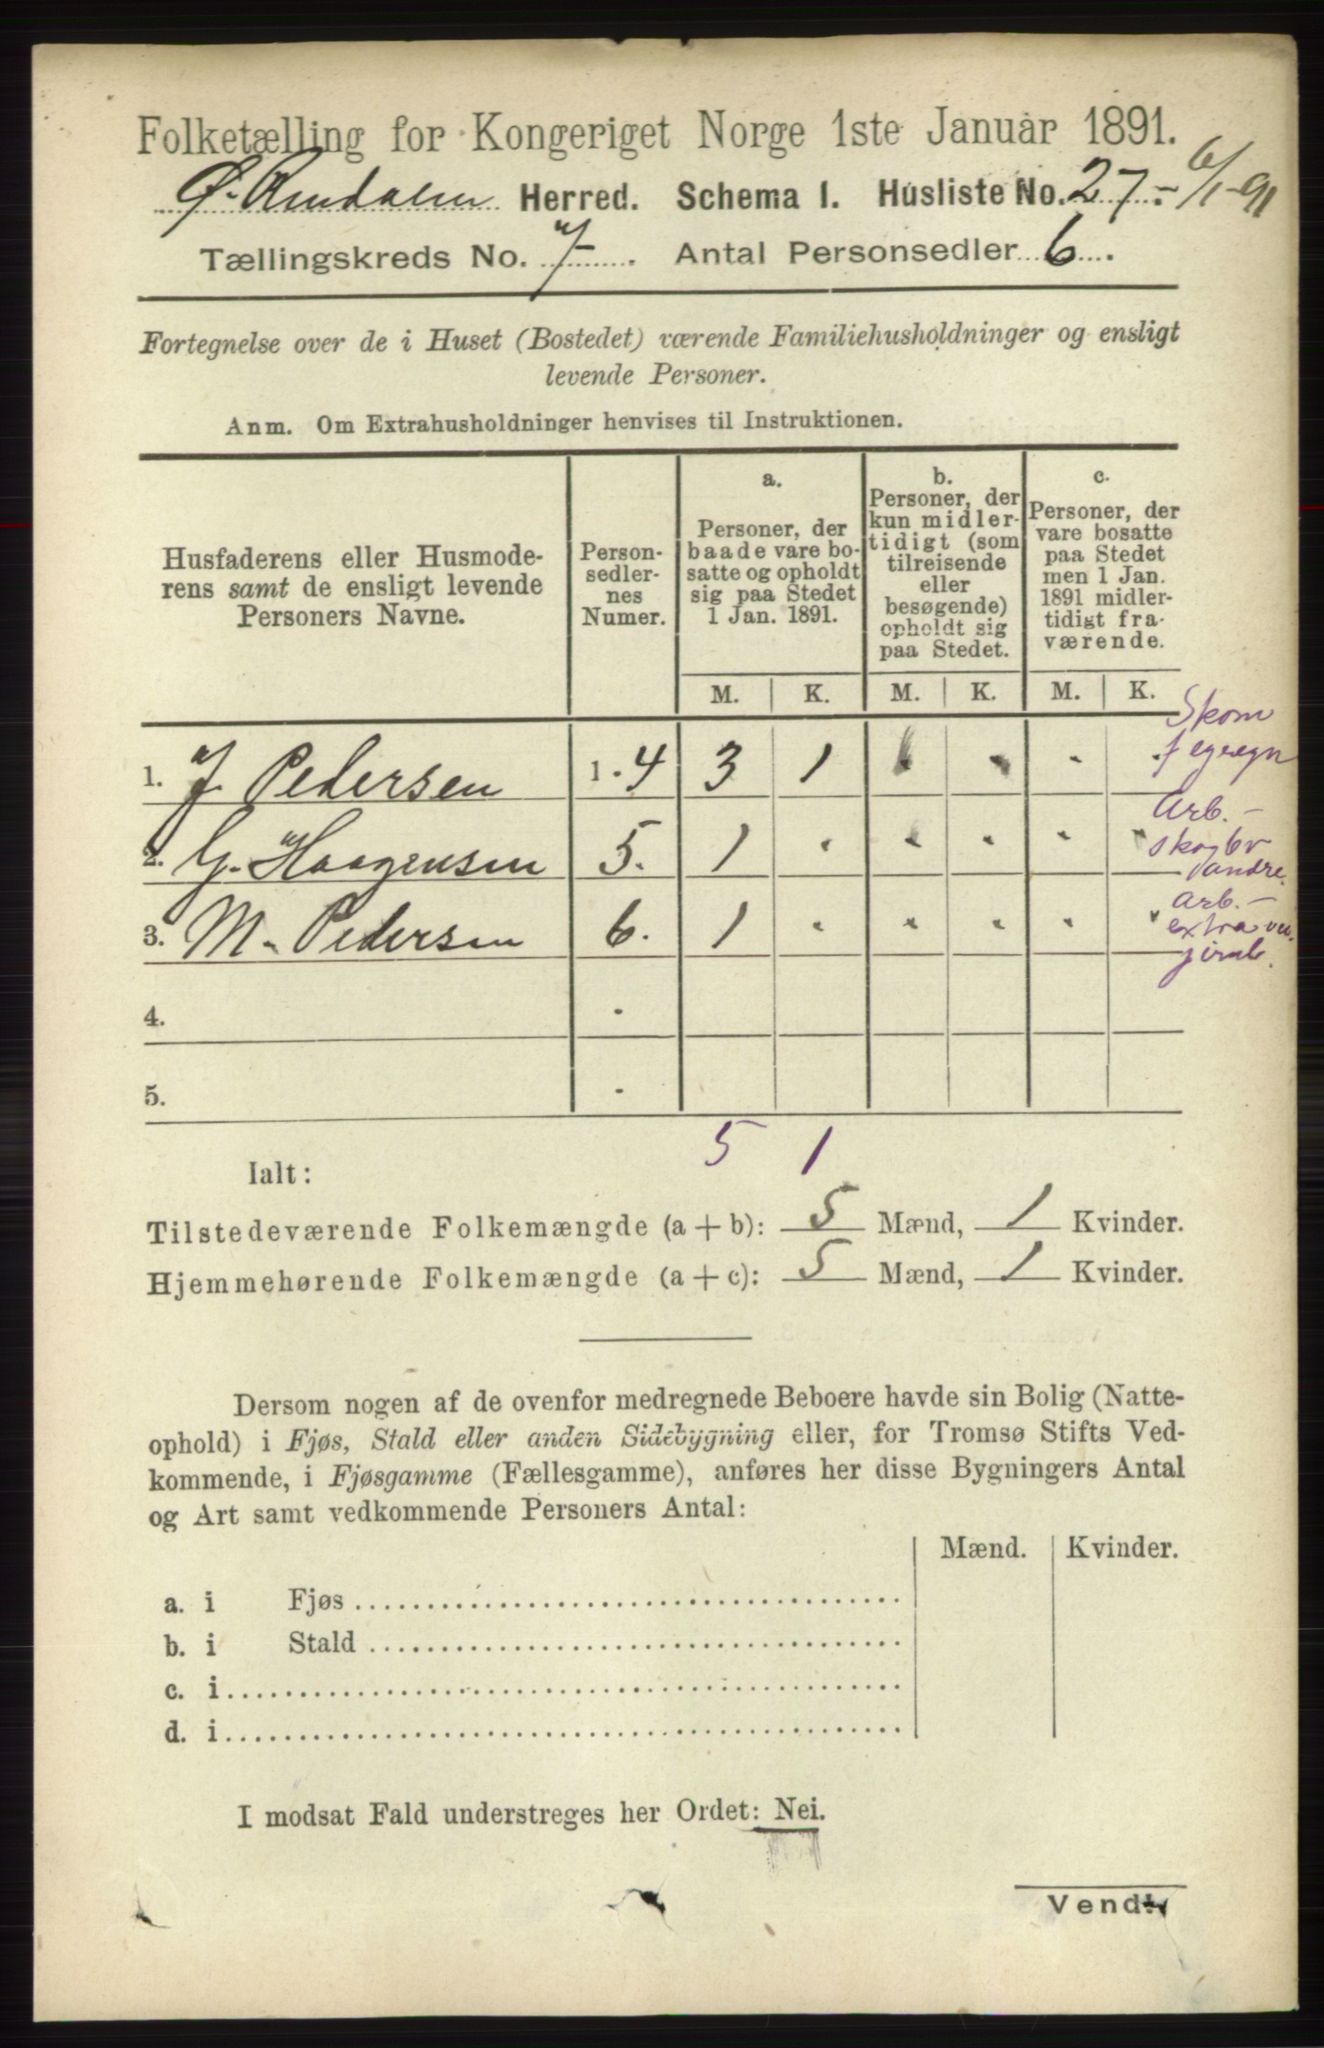 Folketælling for Kongeriget Norge 1ste Januar 1891.
Ø. Rendalen Herred. Schema I. Husliste No. 27.- 6/1-91
Tællingskreds No. 7. Antal Personsedler 6.
Fortegnelse over de i Huset (Bostedet) værende Familiehusholdninger og ensligt
levende Personer.
Anm. Om Extrahusholdninger henvises til Instruktionen.
Husfaderens eller Husmode-
rens samt de ensligt levende
Personers Navne.
Person-
sedler-
nes
Numer.
a.
Personer, der
baade vare bo-
satte og opholdt
sig paa Stedet
1 Jan. 1891.
b.
Personer, der
kun midler-
tidigt (som
tilreisende
eller
besøgende)
opholdt sig
paa Stedet.
c.
Personer, der
vare bosatte
paa Stedet
men 1 Jan.
1891 midler-
tidigt fra-
værende.
M. K. M. K. M. K.
Skom
f egregn
1. J. Pedersen 1 - 4 3 1
Arb. -
skogbr
andre.
2. G. Haagensen 5. 1
Arb. -
extra
3. M. Pedersen 6. 1
4.
5.
5 1
Ialt:
Tilstedeværende Folkemængde (a + b): 5 Mænd, 1 Kvinder.
Hjemmehørende Folkemængde (a + c): 5 Mænd, 1 Kvinder.
Dersom nogen af de ovenfor medregnede Beboere havde sin Bolig (Natte-
ophold) i Fjøs, Stald eller anden Sidebygning eller, for Tromsø Stifts Ved-
kommende, i Fjøsgamme (Fællesgamme), anføres her disse Bygningers Antal
og Art samt vedkommende Personers Antal:
Mænd. Kvinder.
a. i Fjøs
b. i Stald
c. i
d. i
I modsat Fald understreges her Ordet: Nei.
Vend!